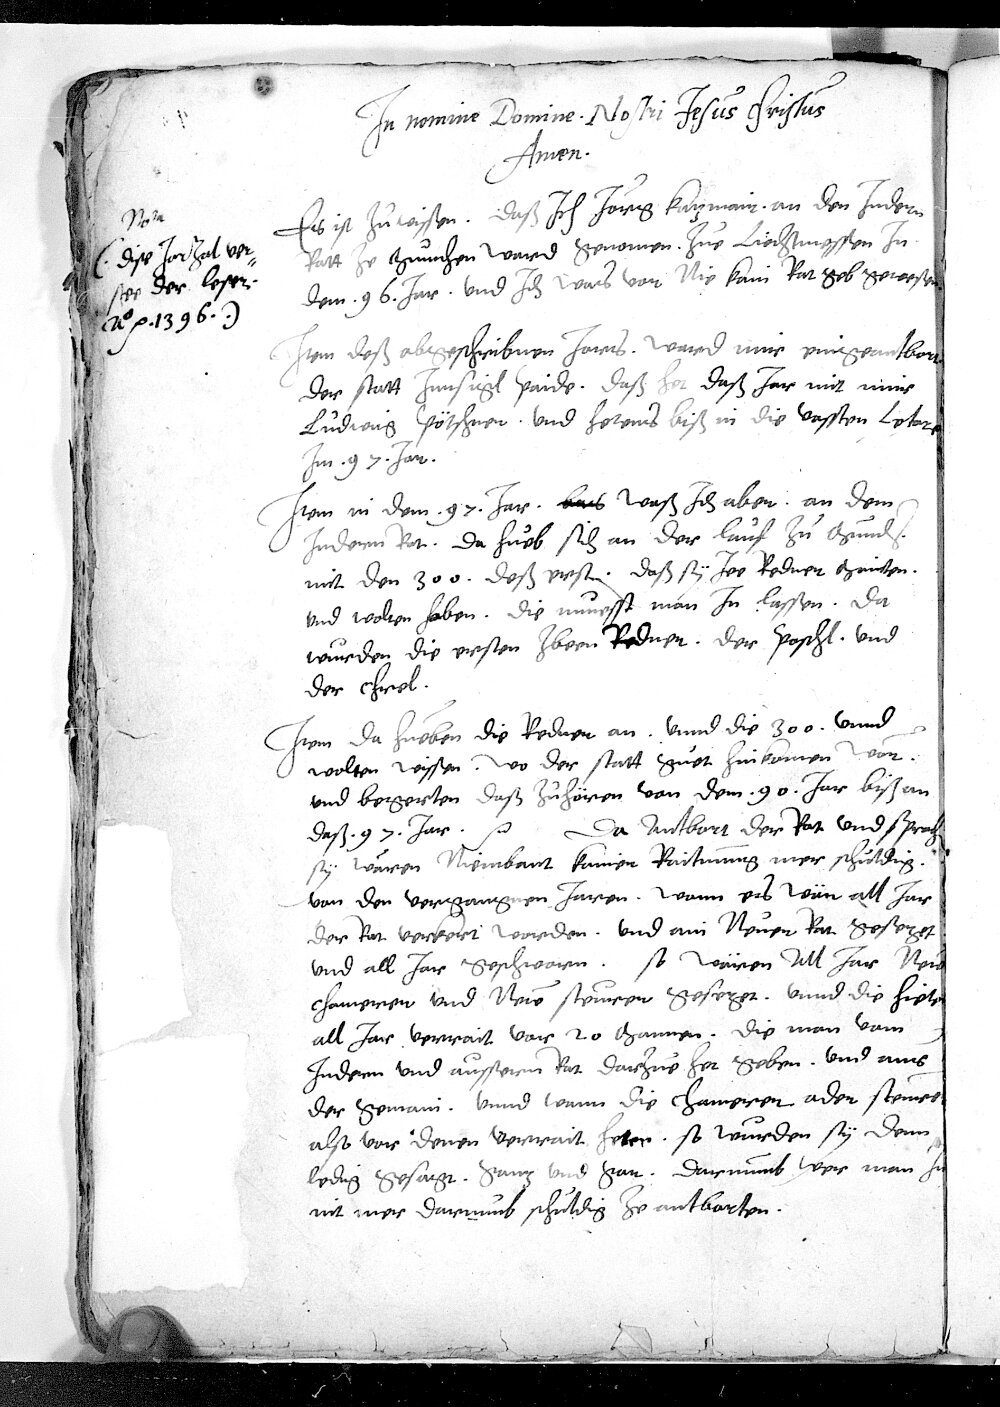 In nomine Domine. Nostri Jesus Christus
Amen.
Nota
(. dise Jarzal ver=
stee der leser.
Aº p. 1396. :)
Es ist zuwissen. daß Ich Jörig kazmair. an den Indern
Ratt ze München ward genomen. zue Liechtmessen In
dem. 96. Jar. und Ich was vor Nie kain Rat geb gewesen
Item deß obgeschribnen Jares. ward mir eingeantbort
der statt Innsigl paide. daß het daß Jar mit mir
Ludwig pötschner. und hetens biß in die vassten Letare
Im. 97. Jar.
Item in dem. 97. Jar. waß Ich aber. an dem
Inderm Rat. da hueb sich an der lauf zu
mit den 300. deß erst. daß sy Jre Redner
und wolten haben. die muesst man In lassen. Da
wurden die ersten zbeen Redner. der poschl. und
der chrel.
Item da hueben die Redner an. unnd die 300. unnd
wolten wissen. wo der statt guet hinkomen wär.
und begerten daß zuhören von dem. 90. Jar biß an
daß. 97. Jar. Da Antbort der Rat und sprach
sy wären Niembant kainer Raitnung mer schuldig.
von den vergangnen Jaren. wann es wär all Jar
der Rat verkert worden. und ain Neuer Rat gesezet
und all Jar geschworn. so wären All Jar Neue
chamerer und Neue steurer gesezet. unnd die hieten
all Jar verrait vor 20 Mannen. die man vom
Indern und ausserm Rat darzue het geben. und aus
der gemain. unnd wann die chamerer oder steurer
also vor denen verrait heten. so wurden sy denn
ledig gesagt. ganz und gar. darumb wer man In
nit mer darumb schuldig ze antborten.